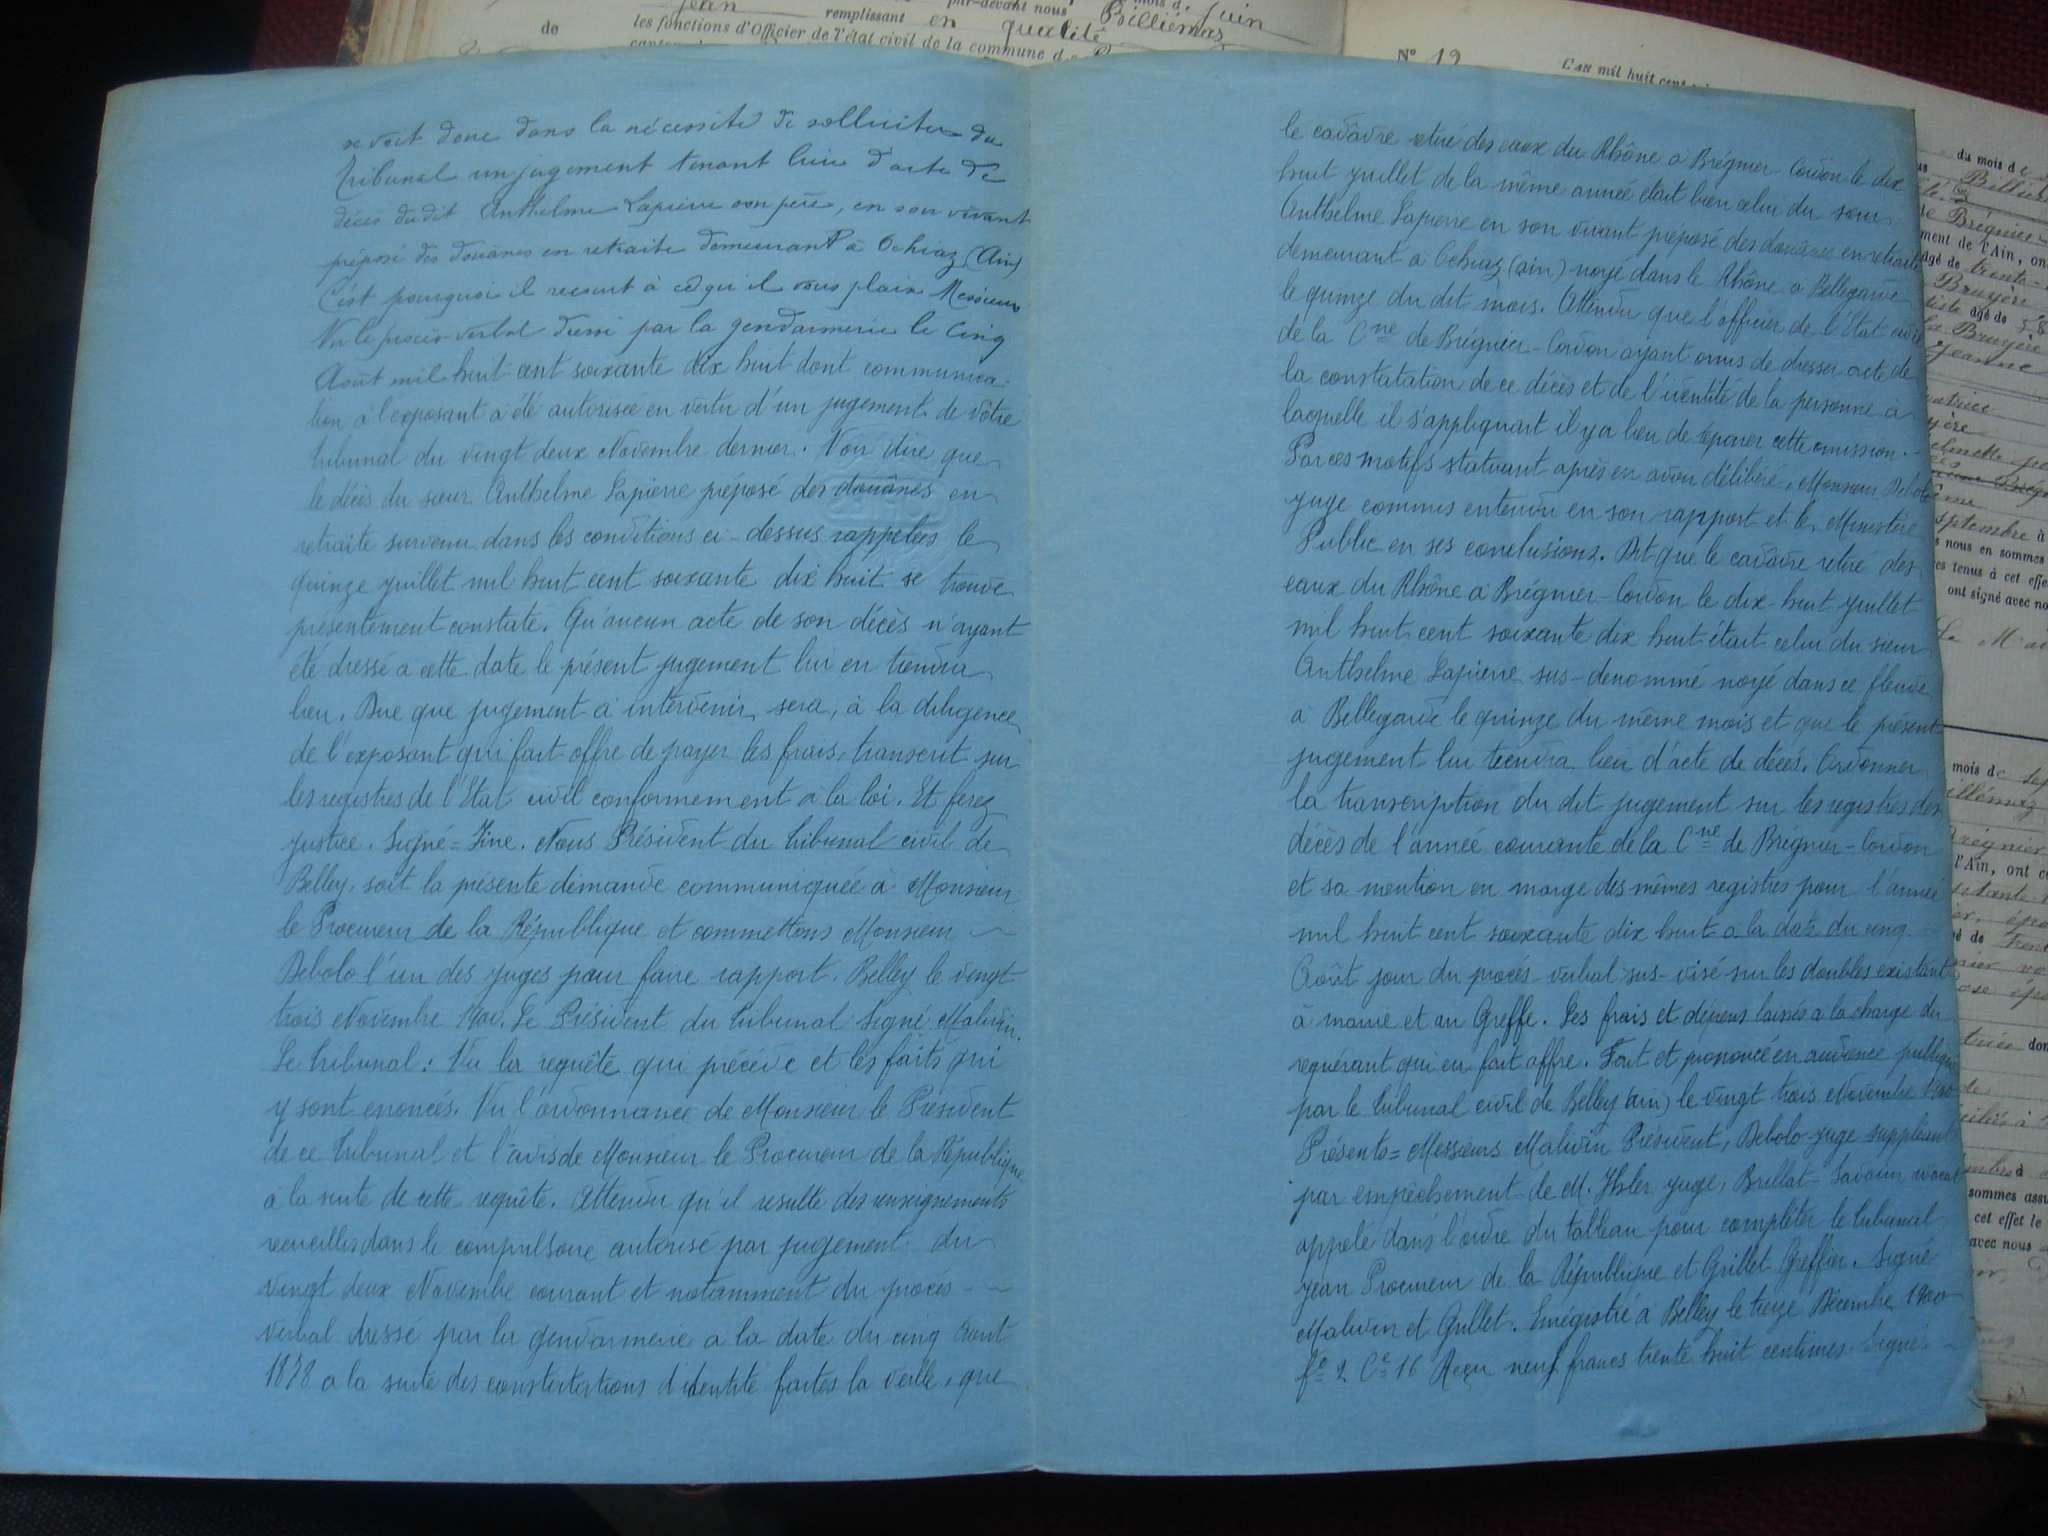 se voit donc dans la nécessité de solliciter du
Tribunal un jugement tenant lieu d'acte de
décès du dit Anthelme Lapierre son père, en son vivant
préposé des douanes en retraite demeurant à Ochiaz (Ain)
C'est pourquoi il recourt à ce qu'il vous plaise Messieurs
Vu le procès-verbal dressé par la gendarmerie le Cinq
Août mil huit cent soixante dix huit dont communica-
tion à l'exposant a été autorisée en vertu d'un jugement de vôtre
tribunal du vingt deux Novembre dernier. Voir dire que
le décès du sieur Anthelme Lapierre préposé des douânes en
retraite survenu dans les conditions ci-dessus rappelées le
quinze juillet mil huit cent soixante dix huit se trouve
présentement constaté. Qu'aucun acte de son décès n'ayant
été dressé a cette date le présent jugement lui en tiendra
lieu. Dire que jugement a intervenir sera, à la diligence
de l'exposant qui fait offre de payer les frais, transcrit sur
les registres de l'Etat civil conformement a la loi. Et ferez
justice. Signé = Fine. Nous Président du tribunal civil de
Belley, soit la présente demande communiquée à Monsieur
le Procureur de la République et commettons Monsieur
Debolo l'un des juges pour faire rapport. Belley le vingt
trois Novembre 1900. Le Président du tribunal signé Malivin.
Le tribunal : Vu la requête qui précède et les faits qui
y sont enoncés. Vu l'ordonnance de Monsieur le Président
de ce tribunal et l'avis de Monsieur le Procureur de la République
à la suite de cette requête. Attendu qu'il resulte des renseignements
recueillis dans le compulsoire autorisé par jugement du
vingt deux Novembre courant et notamment du procès-
verbal dressé par la gendarmerie a la date du cinq Août
1878 a la suite des constatations d'identité faites la veille, que
le cadâvre retiré des eaux du Rhône à Brégnier-Cordon le dix
huit juillet de la même année était bien celui du sieur
Anthelme Lapierre en son vivant préposé des douânes en retraite
demeurant à Ochiaz (ain) noyé dans le Rhône à Bellegarde
le quinze du dit mois. Attendu que l'officier de l'Etat civil
de la Cne de Brégnier-Cordon ayant omis de dresser acte de
la constatation de ce décès et de l'identité de la personne à
laquelle il s'appliquait il y a lieu de réparer cette omission.
Par ces motifs statuant après en avoir délibéré, Monsieur Debolo
juge commis entendu en son rapport et le Ministère
Public en ses conclusions. Dit que le cadâvre retiré des
eaux du Rhône à Brégnier-Cordon le dix-huit juillet
mil huit cent soixante dix huit était celui du sieur
Anthelme Lapierre sus-denommé noyé dans ce fleuve
à Bellegarde le quinze du même mois et que le présent
jugement lui tiendra lieu d'acte de décès. Ordonner
la transcription du dit jugement sur les registres des
décès de l'année courante de la Cne de Brégnier-Cordon
et sa mention en marge des mêmes registres pour l'année
mil huit cent soixante dix huit a la date du cinq
Août jour du procès-verbal sus-visé sur les doubles existant
à mairie et au Greffe. Les frais et dépens laissés a la charge du
requérant qui en fait offre. Fait et prononcé en audience publique
par le tribunal civil de Belley (ain) le vingt trois Novembre 1900
Présents = Messieurs Malivin Président, Debolo juge suppléant
par empêchement de M. juge, Brillat-Savarin avocat
appelé dans l'ordre du tableau pour compléter le tribunal
Jean Procureur de la République et Grillet Greffier. Signé
Malivin et Grillet. Enregistré à Belley le treize Décembre 1900
fo 2 Ce 16 Reçu neuf francs trente huit centimes. Signé
Jean
par-devant nous Billiémaz
mois d juin
de
remplissant en qualité
les fonctions d'Officier de l'état civil de la commune de
N° 12
L'AN mil huit cent
du mois de
ment de l'Ain, on
âgé de trente
Bruyère
âgé de 58
la Bruyère
Jeanne
septembre à
nous en sommes
tenus à cet effe
ont signé avec no
Le M
mois de sep
Brégnier
l'Ain, ont c
sommes assu
cet effet le
avec nous